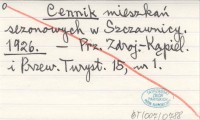 Cennik mieszkań
sezonowych w Szczawnicy.
1926. — Prz. Zdroj-Kąpiel.
i Przew. Turyst. 15, nr 1.